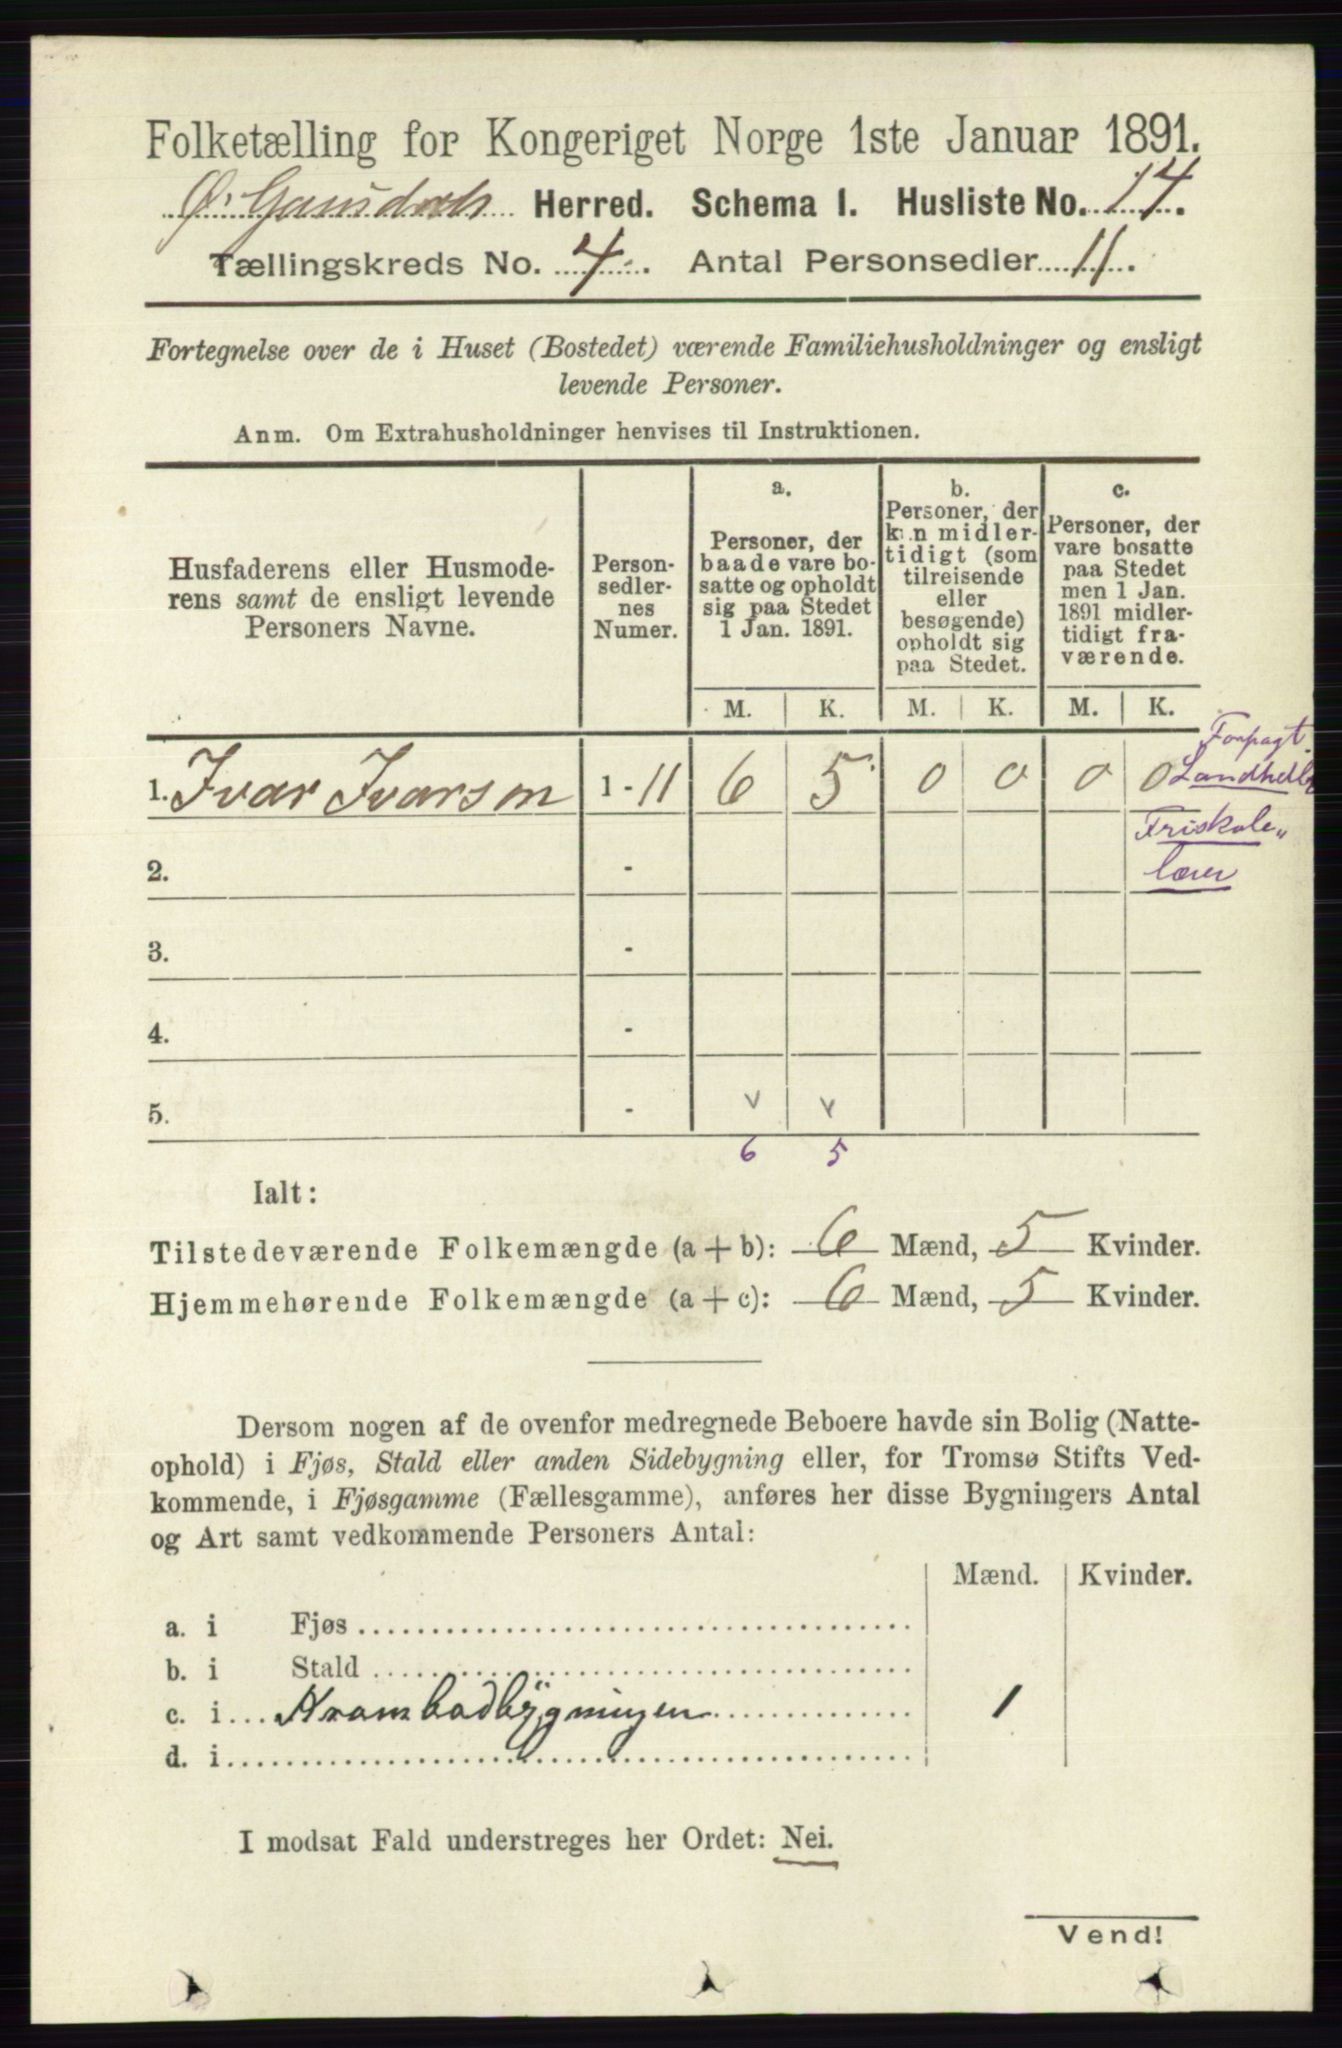 Folketælling for Kongeriget Norge 1ste Januar 1891.
Ø. Gausdal Herred. Schema I. Husliste No. 14.
Tællingskreds No. 4. Antal Personsedler 11.
Fortegnelse over de i Huset (Bostedet) værende Familiehusholdninger og ensligt
levende Personer.
Anm. Om Extrahusholdninger henvises til Instruktionen.
Husfaderens eller Husmode-
rens samt de ensligt levende
Personers Navne.
Person-
sedler-
nes
Numer.
a.
Personer, der
baade vare bo-
satte og opholdt
sig paa Stedet
1 Jan. 1891.
b.
Personer, der
kun midler-
tidigt (som
tilreisende
eller
besøgende)
opholdt sig
paa Stedet.
c.
Personer, der
vare bosatte
paa Stedet
men 1 Jan.
1891 midler-
tidigt fra-
værende.
M. K. M. K. M. K.
Forpagt.
1. Ivar Ivarson 1 - 11 6 5 0 0 0 0 Landhdl
Friskole„
lærer
2. -
3. -
4. -
5. - v v
6 5
Ialt:
Tilstedeværende Folkemængde (a + b): 6 Mænd, 5 Kvinder.
Hjemmehørende Folkemængde (a + c): 6 Mænd, 5 Kvinder.
Dersom nogen af de ovenfor medregnede Beboere havde sin Bolig (Natte-
ophold) i Fjøs, Stald eller anden Sidebygning eller, for Tromsø Stifts Ved-
kommende, i Fjøsgamme (Fællesgamme), anføres her disse Bygningers Antal
og Art samt vedkommende Personers Antal:
Mænd. Kvinder.
a. i Fjøs
b. i Stald
c. i Krambodbygningen 1
d. i
I modsat Fald understreges her Ordet: Nei.
Vend!